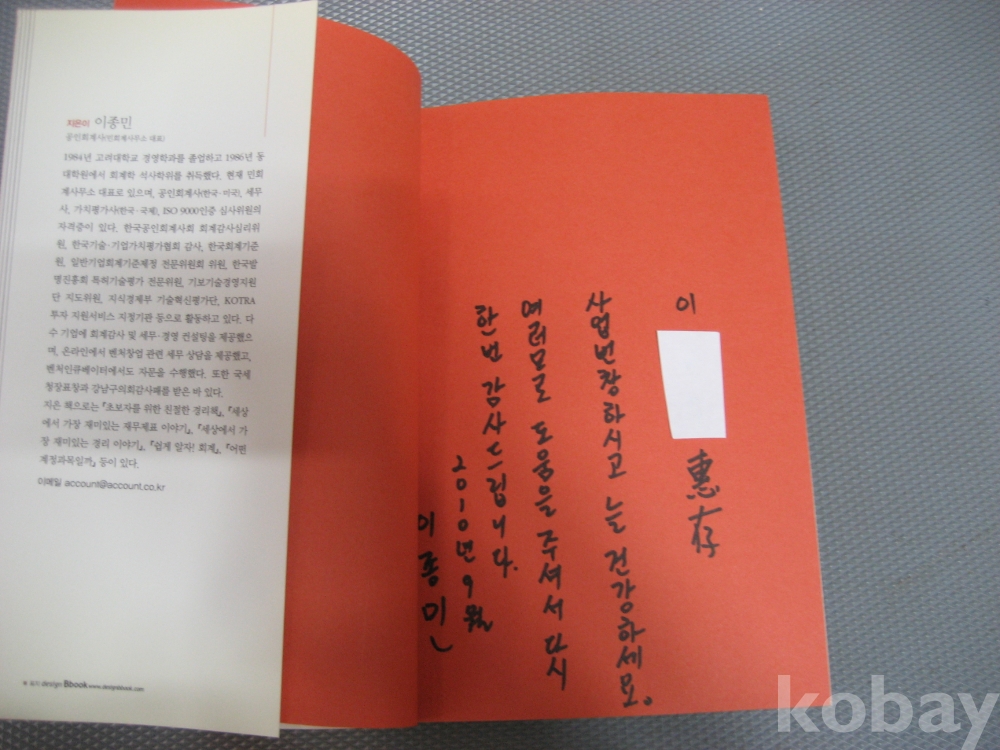 지은이 이종민
공인회계사(민회계사무소 대표)
1984년 고려대학교 경영학과를 졸업하고 1986년 동
대학원에서 회계학 석사학위를 취득했다. 현재 민회
계사무소 대표로 있으며, 공인회계사(한국·미국), 세무
사, 가치평가사(한국·국제), ISO 9000인증 심사위원의
자격증이 있다. 한국공인회계사회 회계감사심리위
원, 한국기술·기업가치평가협회 감사, 한국회계기준
원, 일반기업회계기준제정 전문위원회 위원, 한국발
명진흥회 특허기술평가 전문위원, 기보기술경영지원
단 지도위원, 지식경제부 기술혁신평가단, KOTRA
투자 지원서비스 지정기관 등으로 활동하고 있다. 다
수 기업에 회계감사 및 세무·경영 컨설팅을 제공했으
며, 온라인에서 벤처창업 관련 세무 상담을 제공했고,
벤처인큐베이터에서도 자문을 수행했다. 또한 국세
청장표창과 강남구의회감사패를 받은 바 있다.
지은 책으로는 『초보자를 위한 친절한 경리책』, 『세상
에서 가장 재미있는 재무제표 이야기』, 『세상에서 가
장 재미있는 경리 이야기』, 『쉽게 알자! 회계』, 『어떤
계정과목일까』 등이 있다.
이메일 account@account.co.kr
design Bbook www.designbbook.com
이
惠存
사업번창하시고 늘 건강하세요。
여러모로 도움을 주셔서 다시
한번 감사드립니다.
2010년 9월
이종민
kobay